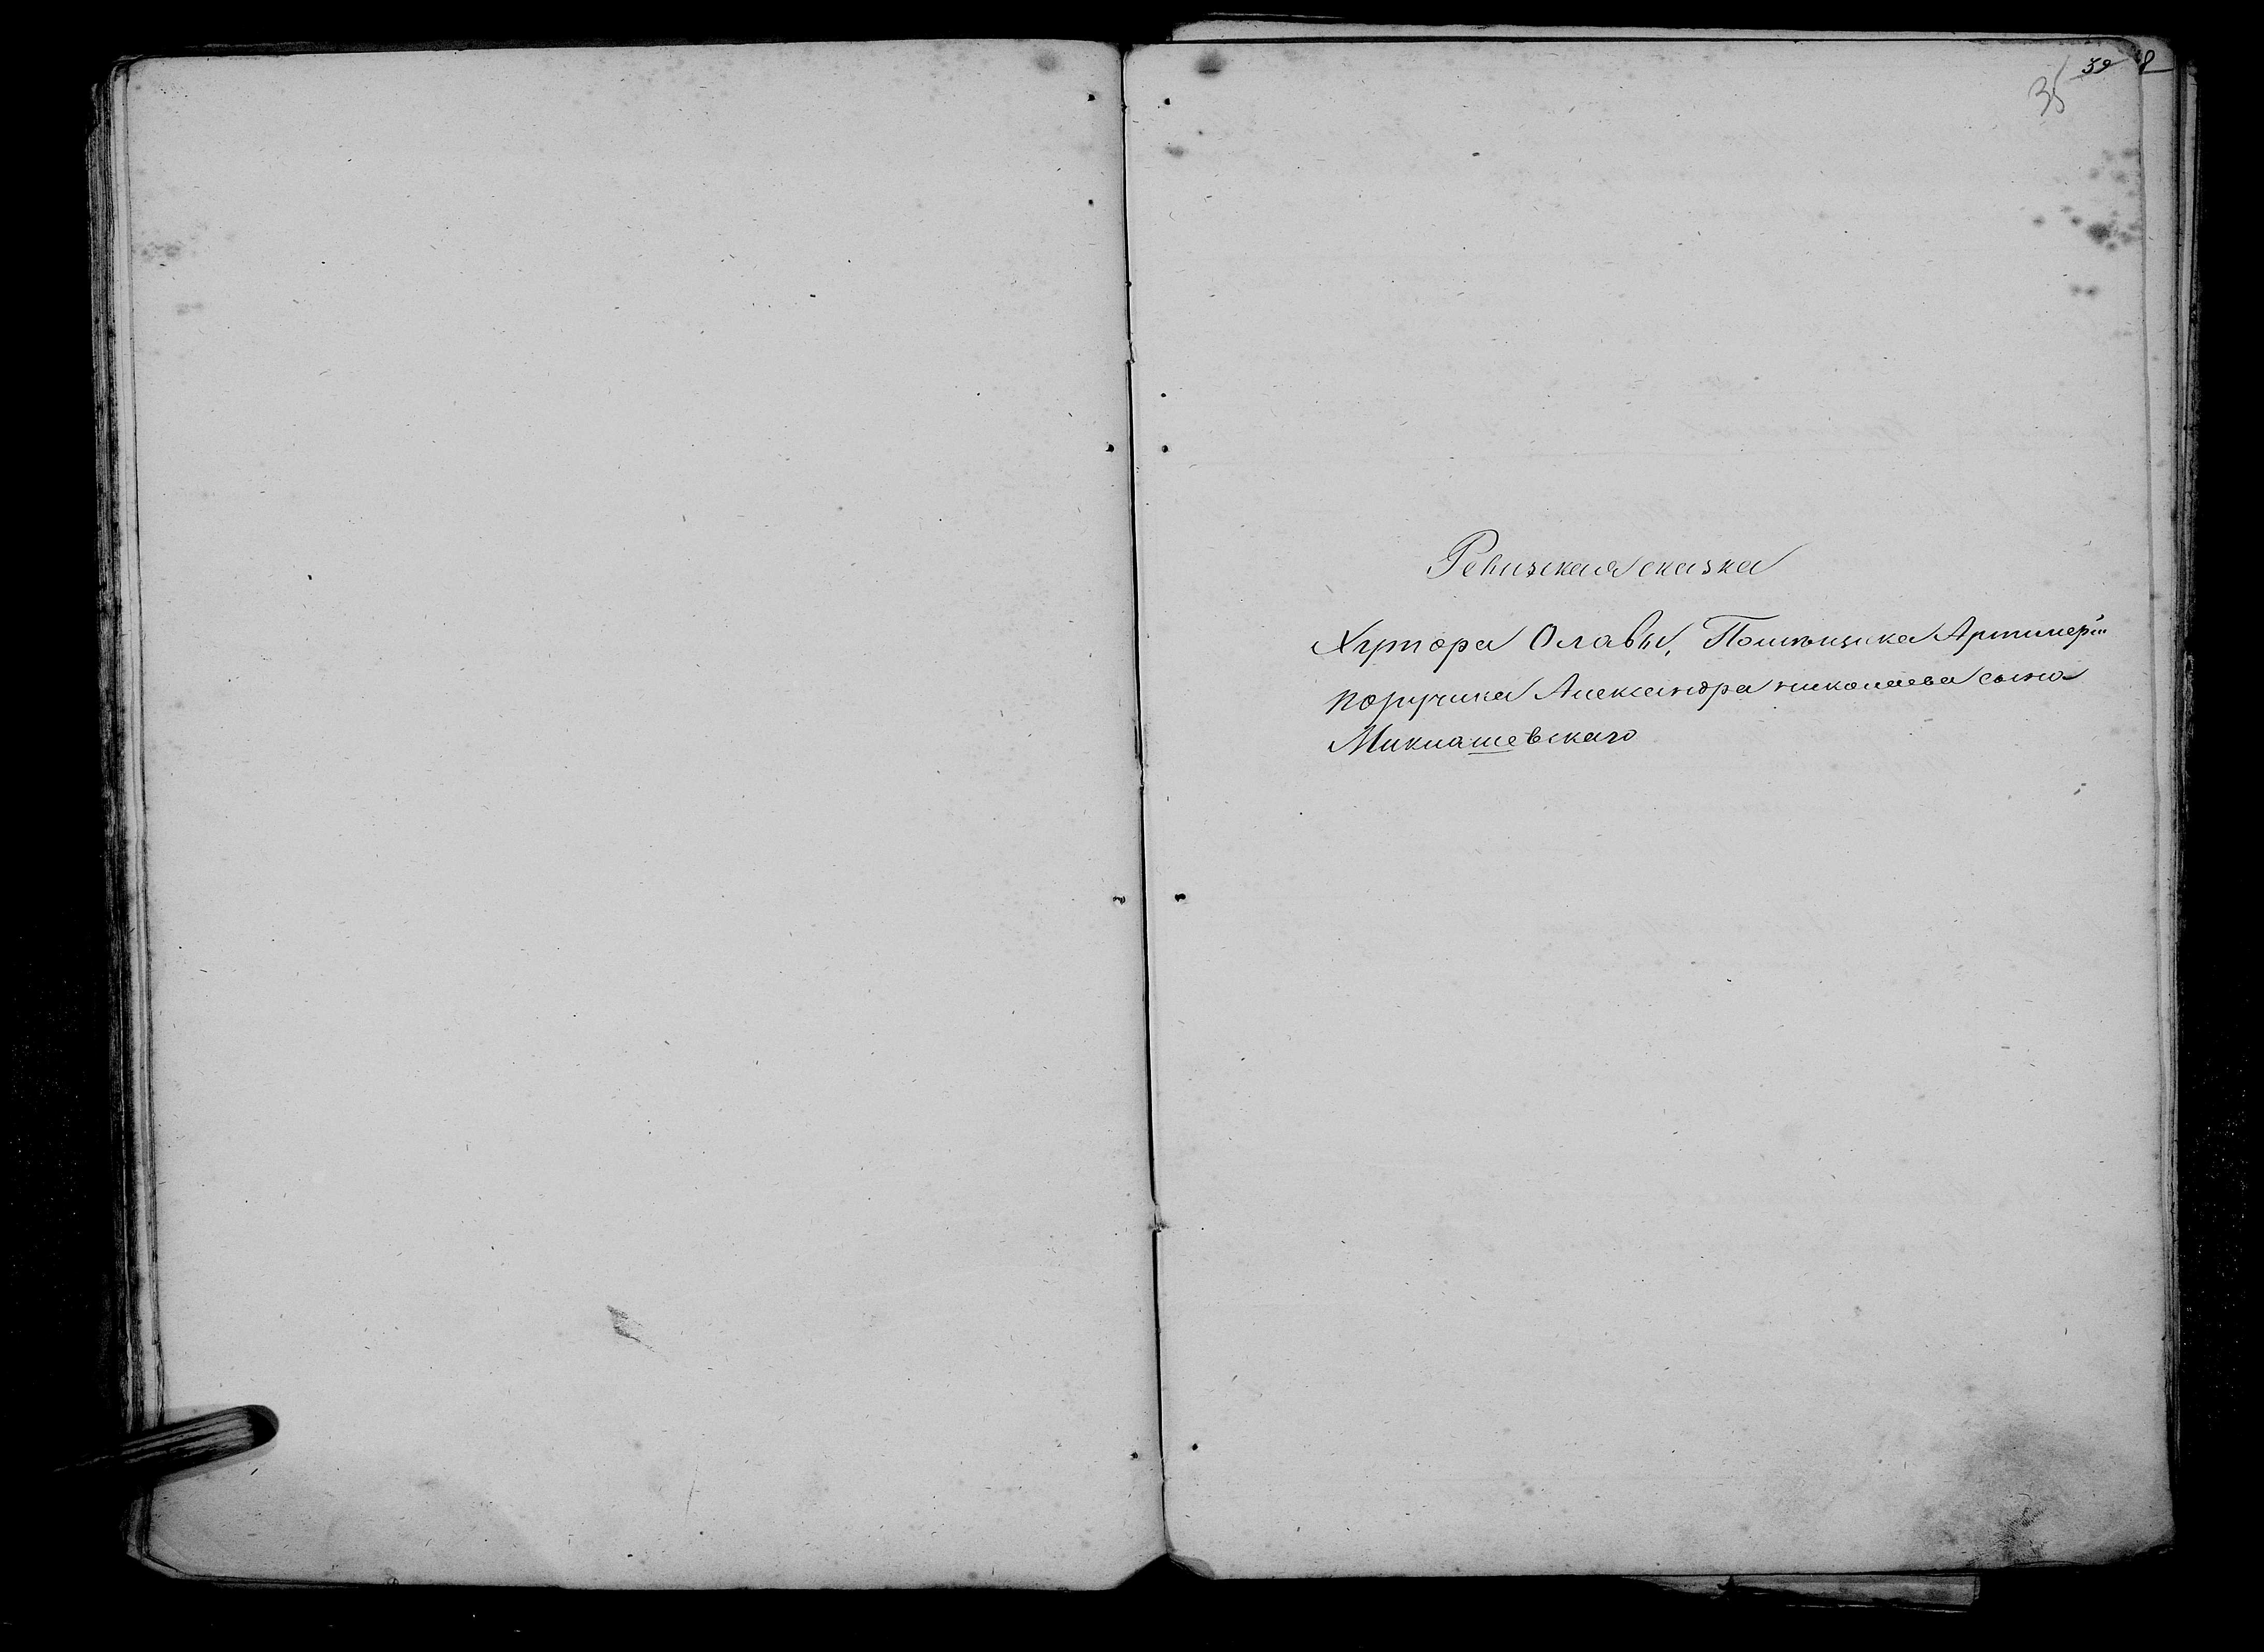 39 8
35
Ревизская сказка
Хутора Олавы, Помѣщика Артилерiи
поручика Александра николаева сына
Миклашевскаго